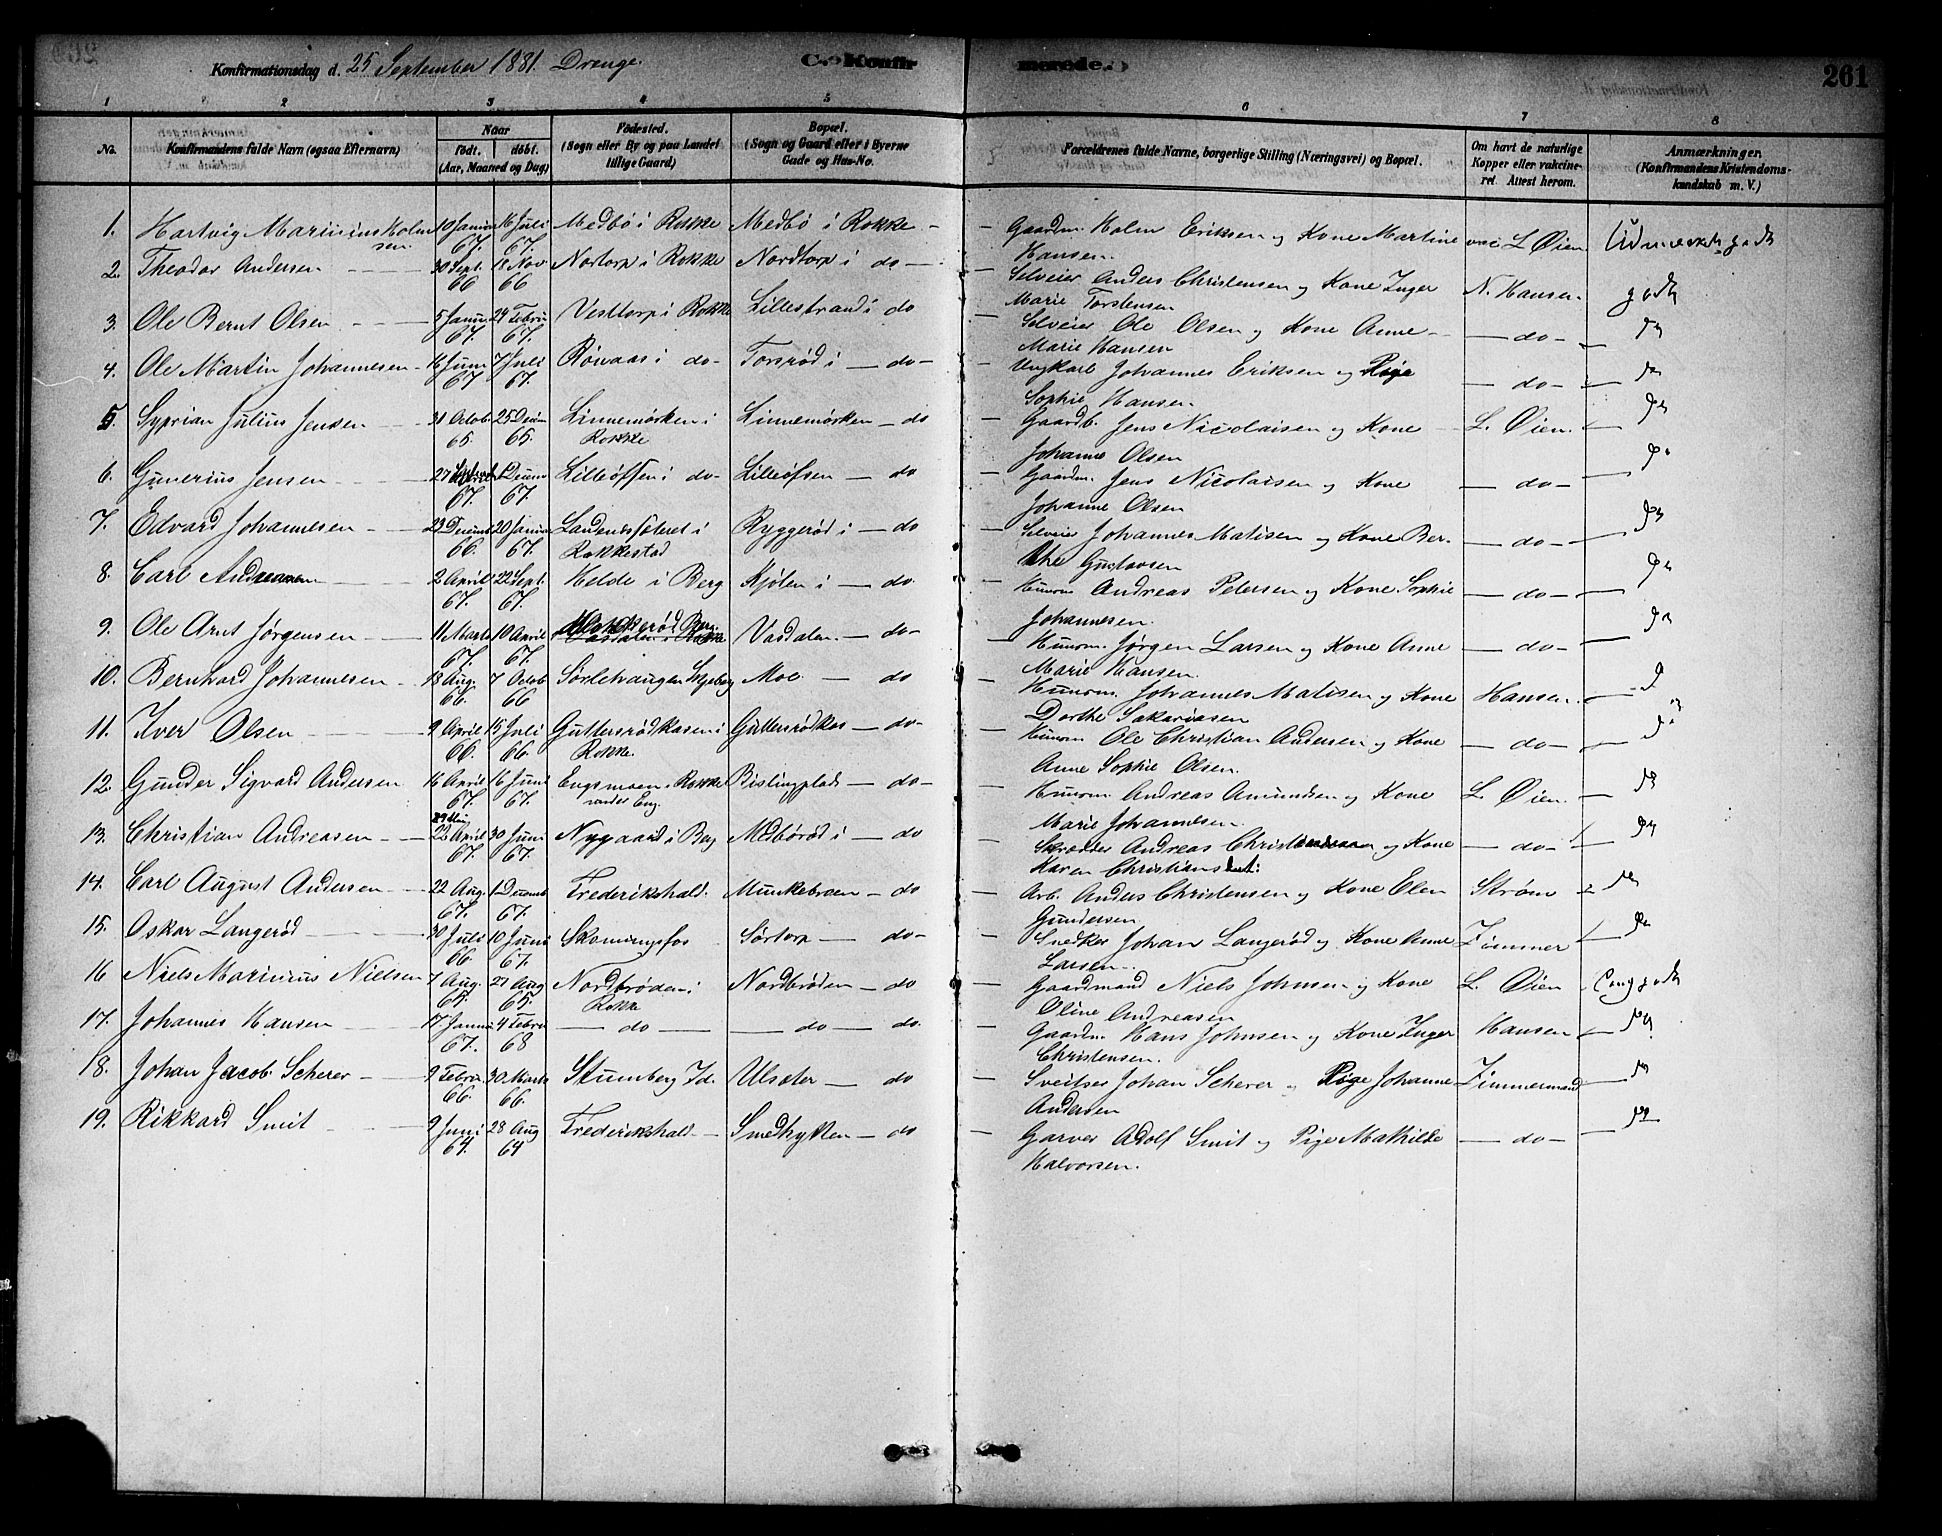 Konfirmationsdag d. 25 September 1881. Drenge. C. Konfir merede. 261
1 2 3 4 5 6 7 8
No. Konfirmandens fulde Navn (ogsaa Efternavn) Naar Födt. döbt. (Aar, Maaned og Dag) Födested. (Sogn eller By og paa Landet tillige Gaard) Bopæl. (Sogn og Gaard eller i Byerne Gade og Hus-No. Forældrenes fulde Navne, borgerlige Stilling (Næringsvei) og Bopæl. Om havt de naturlige Kopper eller vakcineret. Attest herom. Anmærkninger. (Konfirmandens Kristendomskundskab m. V.)
1. Hartvig Marinius Holm 10 Januar 16 Juli Medbö i Rokke Medbö i Rokke – Gaardm. Holm Eriksen og Kone Martine vac. L Øien Udmerket godt
sen. 67. 67. Hansen.
2. Theodor Andersen 30 Sept. 18 Nov Nortorp i Rokke Nordtorp i do – Selveier Anders Christensen og Kone Inger N. Hansen. godt
66 66 Marie Torstensen
3. Ole Bernt Olsen 5 Januar 24 Febru Vesttorp i Rokke Lillestrand i do Selveier Ole Olsen og Kone Anne – do –
67. 67. Marie Hansen
4. Ole Martin Johannesen 16 Juni 7 Juli Rønaas i do – Torsrød i – do – Ungkarl Johannes Eriksen og Pige – do –
67 67. Sophie Hansen.
5. Syprian Julius Jensen 31 Octob 25 Decem Linnemörken i Linnemörken – do Gaardb. Jens Nicolaisen og Kone L. Øien.
65. 65. Rokke Johanne Olsen
6. Gunerius Jensen 27 1 Decem Lilleöfsen i do – Lilleöfsen – do Gaardm. Jens Nicolaisen og Kone – do –
67. 67. Johanne Olsen
7. Edvard Johannesen 23 Decemb 20 Januar i Ryggeröd i – do Selveier Johannes Matisen og Kone Ber- – do –
66. 67. Rokkestad the Gustavsen
8. Carl Andreasen 2 April 22 Sept. Helde i Berg Kjölen i – do Husm. Andreas Petersen og Kone Sophie – do –
67. 67. Johannesen.
9. Ole Arnt Jørgensen 11 Marts 10 April Berg. Vasdalen i Rokke Vasdalen. – do – Husm. Jørgen Larsen og Kone Anne – do –
67. 67. Marie Hansen.
10. Bernhard Johannesen 18 Aug. 7 Octob Skjeberg Moe – do Husm. Johannes Matisen og Kone Hansen.
66. 66 Dorthe Sakariasen
11. Iver Olsen 9 April 15 Juli Guttersrödkasen i Guttersrödkas – do – Husm Ole Christian Andersen og Kone – do –
66. 66. Rokke. Anne Sophie Olsen.
12. Gunder Sigvard Andersen 16 April 16 Juni Engsmoen i Rokke Bislingplads – do – Husm. Andreas Amundsen og Kone L. Øien.
67. 67. under Eng. Marie Johannesen.
29 Mai
13. Christian Andreasen 22 April 30 Juni Nygaard i Berg Medböröd i – do Skrædder Andreas Christiansen og Kone – do –
67. 67. Karen Christians
14. Carl August Andersen 22 Aug. 1 Decemb Frederikshald. Munkebraen – do Arb. Anders Christensen og Kone Elen Strøm
67. 67. Gundersen
15. Oskar Langeröd 30 Juli 10 Juni Skomingsfos Sörtorp – do – Snedker Johan Langeröd og Kone Anne Zimmer
66. 67. Larsen.
16 Niels Marinius Nielsen 7 Aug. 27 Aug Nordbröden i Nordbröden – do Gaardmand Niels Johnsen og Kone L. Øien
65. 65. Rokke Oline Andreasen
17. Johannes Hansen 17 Januar 4 Febru – do – – do – do. Gaardm. Hans Johnsen og Kone Inger Hansen
67. 68 Christensen.
18. Johan Jacob Scherer 9 Febru 30 Marts Stumberg Id. Ulsæter – do Sveitser Johan Scherer og Pige Johanne Zimmermand
66. 66. Andersen
19. Rikkard Smit 9 Juni 28 Aug Frederikshald – Smedhytten – do Garver Adolf Smit og Pige Mathilde – do –
64. 64 Halvorsen.